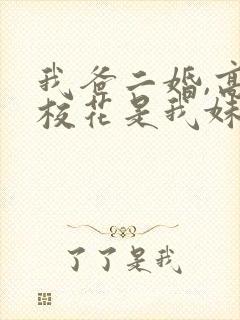 我爸二婚,高
校花是我妹
了了是我